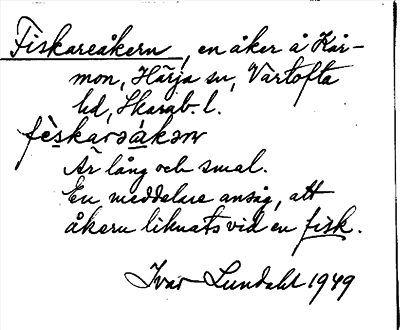 Fiskareåkern, en åker å Kår-
mon, Härja sn, Vartofta
hd, Skarab. l.
fèskaraåkəɳ
Är lång och smal.
En meddelare ansåg, att
åkern liknats vid en fisk.
Ivar Lundahl 1949